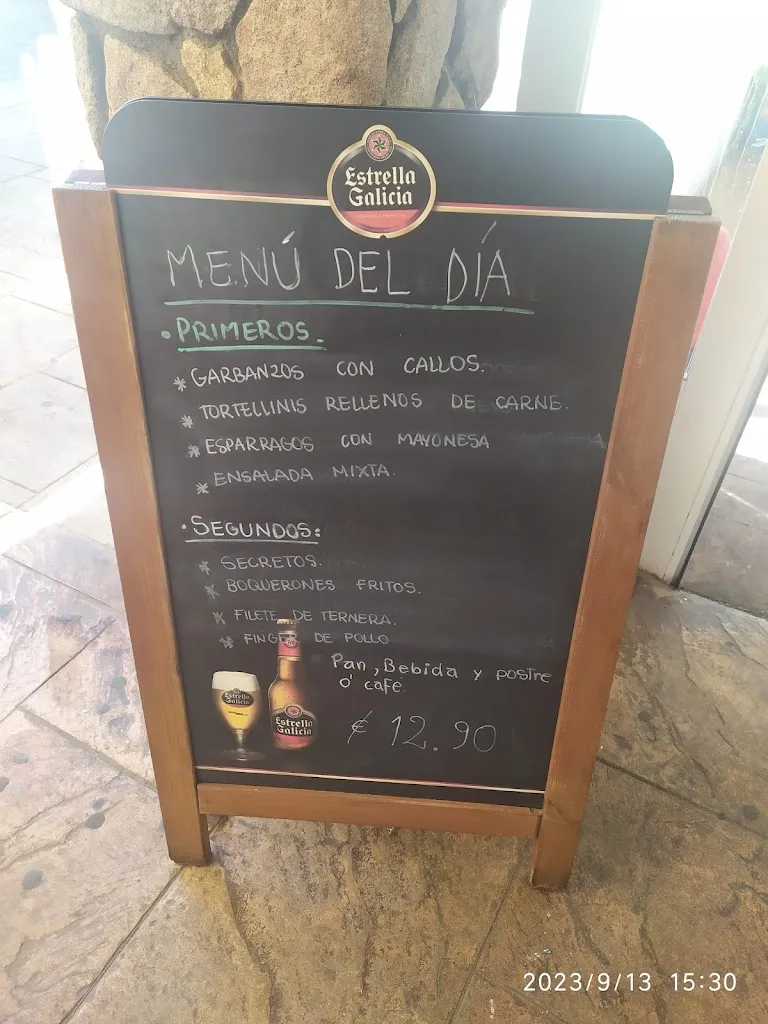 Estrella
Galicia
MENÚ DEL DÍA
• PRIMEROS.
* GARBANZOS CON CALLOS.
* TORTELLINIS RELLENOS DE CARNE.
* ESPARRAGOS CON MAYONESA
* ENSALADA MIXTA.
• SEGUNDOS:
* SECRETOS.
* BOQUERONES FRITOS.
* FILETE DE TERNERA.
* FINGER DE POLLO
Pan, Bebida y postre
ó café.
€ 12.90
Estrella
Galicia
Estrella
Galicia
2023/9/13 15:30